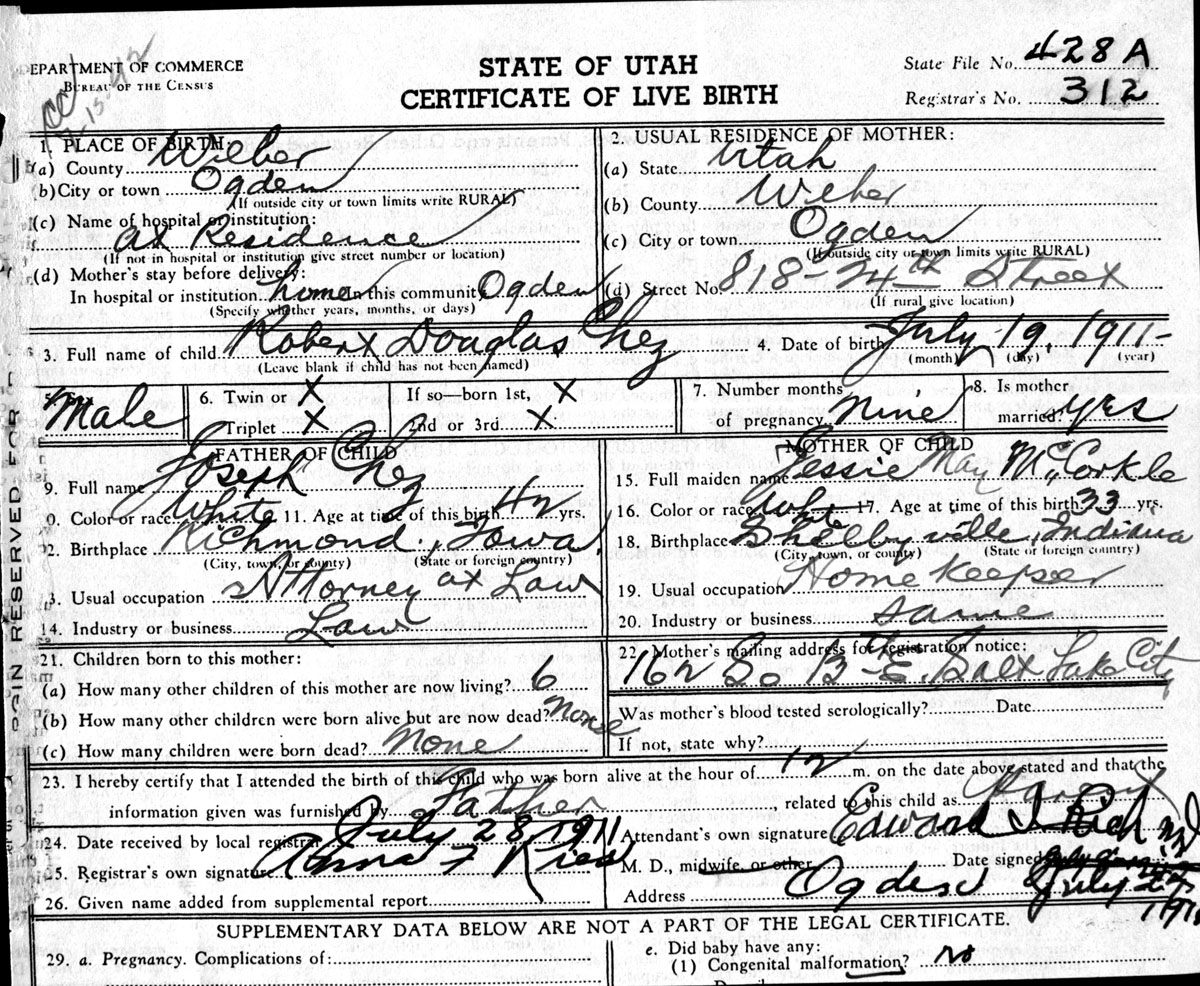 DEPARTMENT OF COMMERCE
BUREAU OF THE CENSUS
STATE OF UTAH
CERTIFICATE OF LIVE BIRTH
State File No. 428A
Registrar's No. 312
1. PLACE OF BIRTH:
(a) County Weber
(b) City or town Ogden
(If outside city or town limits write RURAL)
(c) Name of hospital or institution:
at Residence
(If not in hospital or institution give street number or location)
(d) Mother's stay before delivery:
In hospital or institution home In this community Ogden
(Specify whether years, months, or days)
2. USUAL RESIDENCE OF MOTHER:
(a) State Utah
(b) County Weber
(c) City or town Ogden
(If outside city or town limits write RURAL)
(d) Street No. 818-24th Street
(If rural give location)
3. Full name of child Robert Douglas Chez
(Leave blank if child has not been named)
4. Date of birth July 19, 1911
(month) (day) (year)
5. Male
6. Twin or X If so—born 1st, X
Triplet X 2nd or 3rd X
7. Number months
of pregnancy Nine
8. Is mother
married? yes
FATHER OF CHILD
9. Full name Joseph Chez
0. Color or race White 11. Age at time of this birth 42 yrs.
2. Birthplace Richmond, Iowa
(City, town, or county) (State or foreign country)
3. Usual occupation Attorney at Law
14. Industry or business Law
MOTHER OF CHILD
15. Full maiden name Jessie May McCorkle
16. Color or race White 17. Age at time of this birth 33 yrs.
18. Birthplace Shelbyville, Indiana
(City, town, or county) (State or foreign country)
19. Usual occupation Home keeper
20. Industry or business same
21. Children born to this mother:
(a) How many other children of this mother are now living? 6
(b) How many other children were born alive but are now dead? None
(c) How many children were born dead? None
22. Mother's mailing address for registration notice:
162 So 13th E. Salt Lake City
Was mother's blood tested serologically? Date
If not, state why?
23. I hereby certify that I attended the birth of this child who was born alive at the hour of 12 m. on the date above stated and that the
information given was furnished by Father, related to this child as
24. Date received by local registrar July 28, 1911
25. Registrar's own signature Anna F
26. Given name added from supplemental report
Attendant's own signature Edward I Rich MD
M. D., midwife, or other Date signed July 27 1911
Address Ogden
SUPPLEMENTARY DATA BELOW ARE NOT A PART OF THE LEGAL CERTIFICATE.
29. a. Pregnancy. Complications of:
e. Did baby have any:
(1) Congenital malformation? no
GIN RESERVED FOR